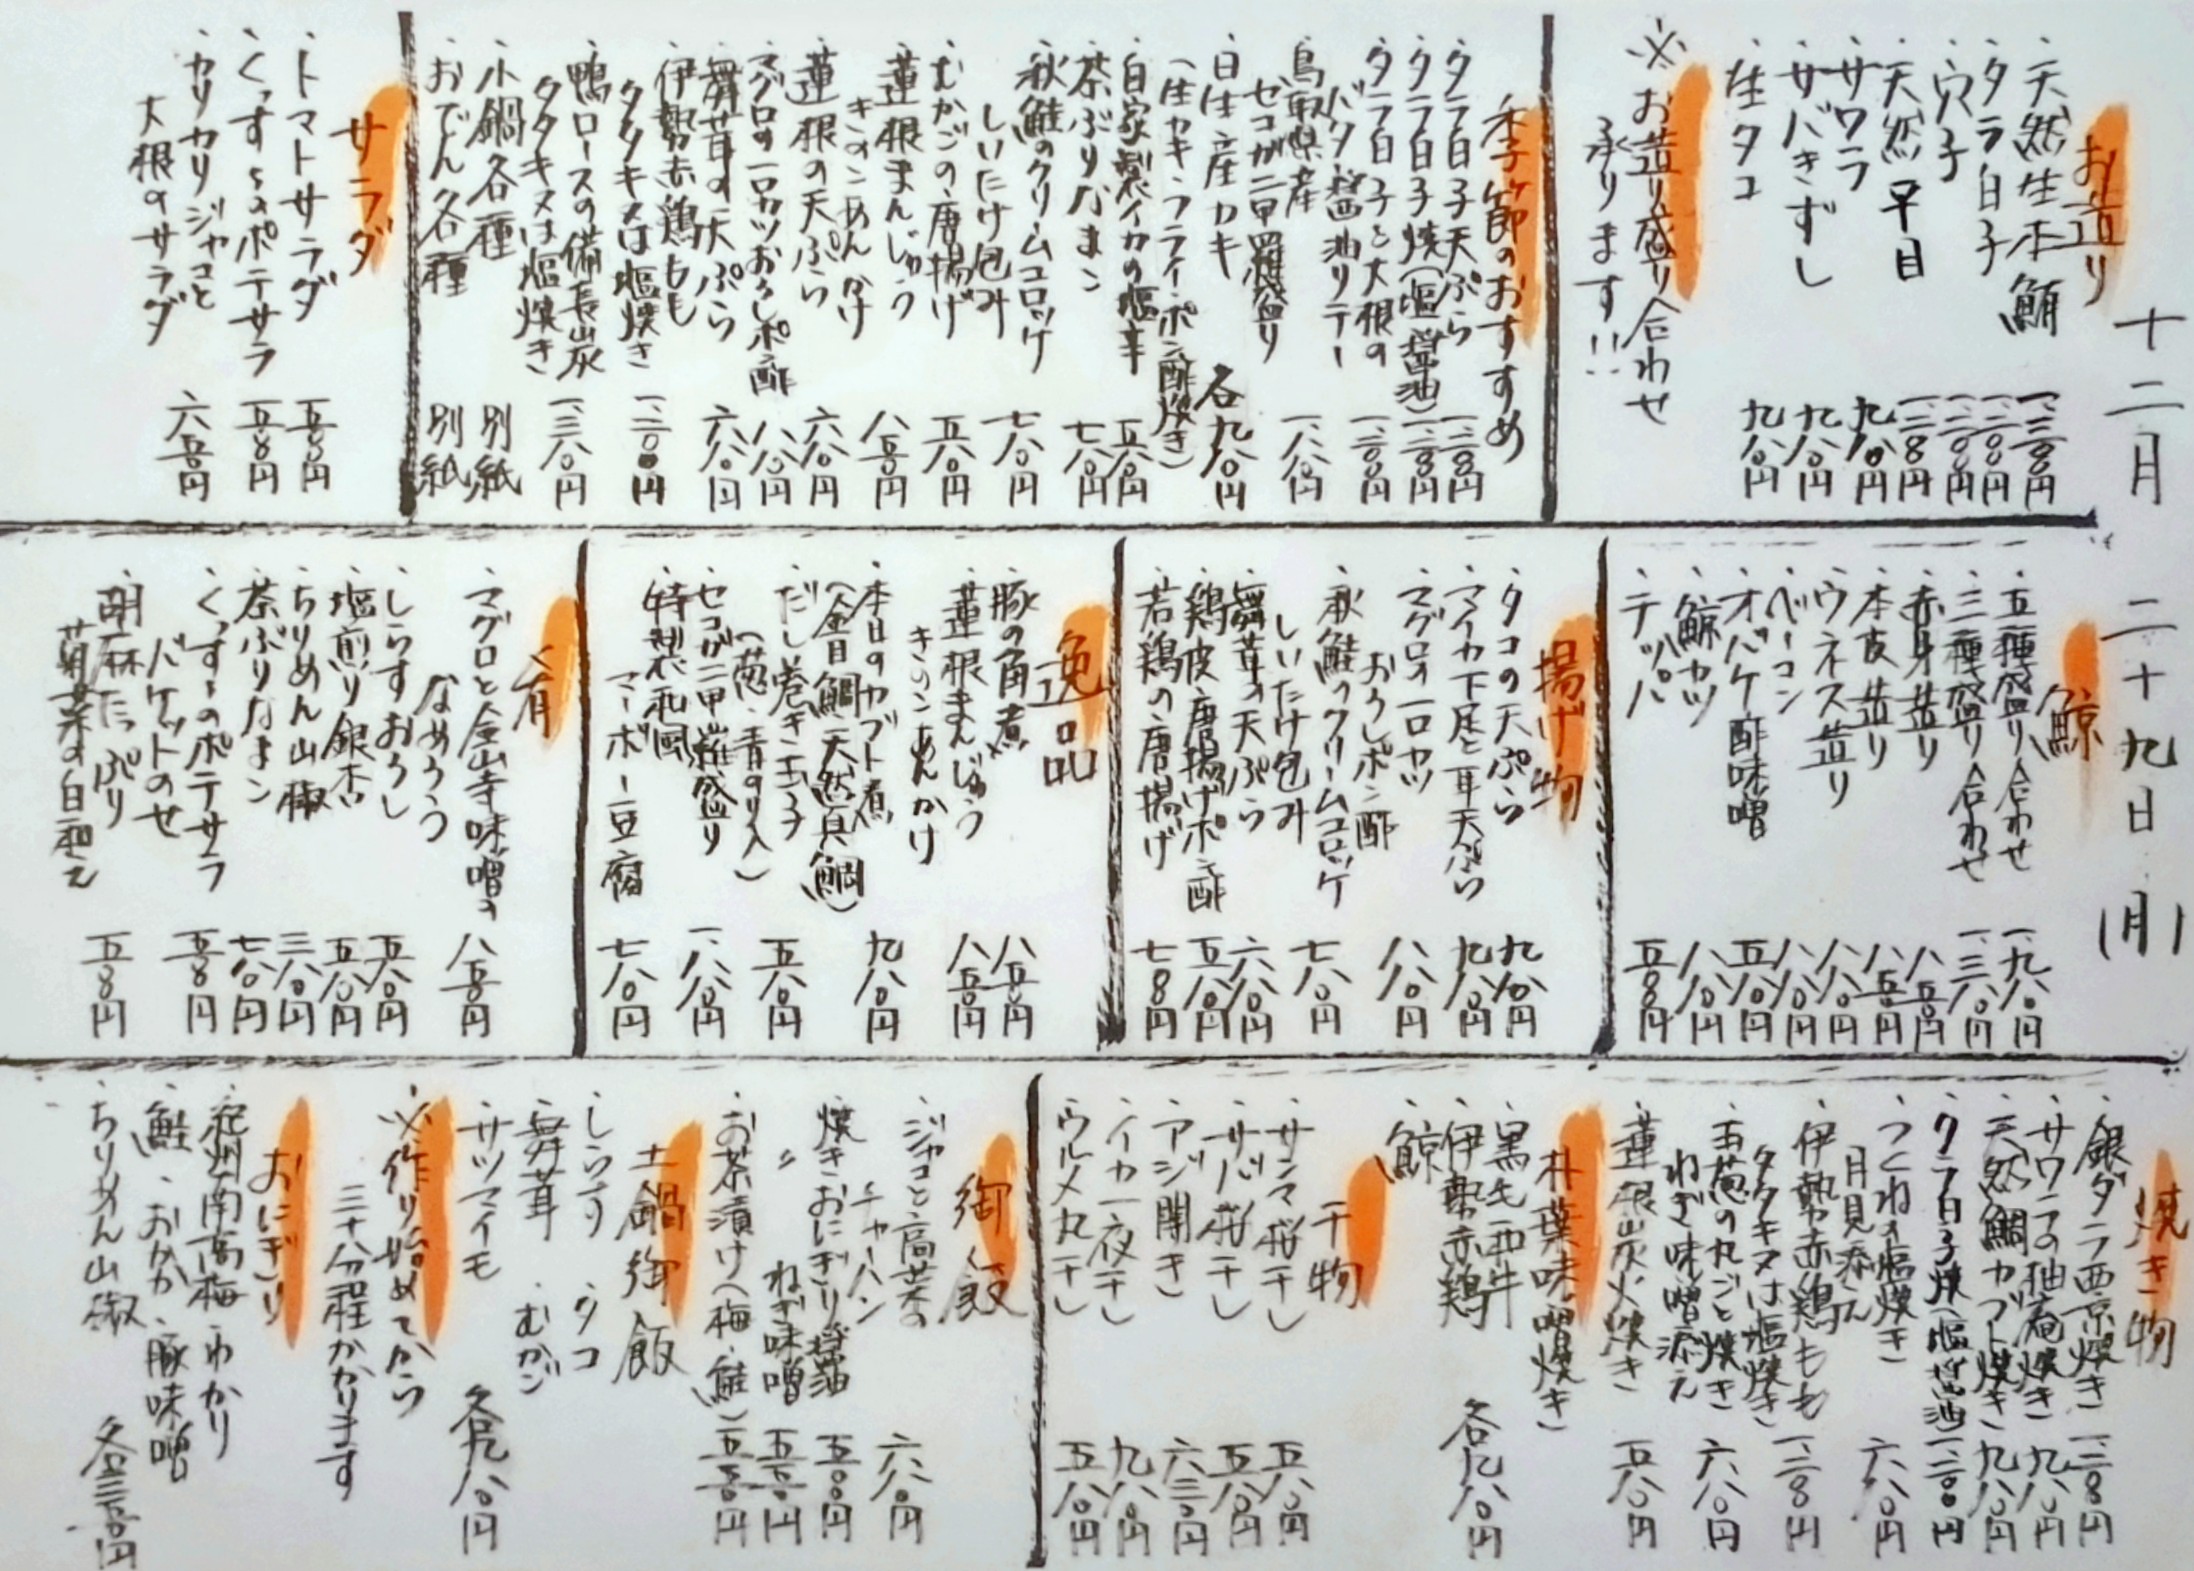 十二月二十九日(月)
お造り
・天然生本鮪 一、三〇〇円
・タラ白子 一、二〇〇円
・穴子 一、二〇〇円
・天然平目
・サワラ 九八〇円
・サバきずし 九八〇円
・生タコ 九八〇円
※お造り盛り合わせ
承ります!!
季節のおすすめ
・タラ白子天ぷら
・タラ白子焼(塩・醤油)
・タラ白子と大根の
バター醤油ソテー
・鳥取県産
セコガニ甲羅盛り 一、八八〇円
・日生産カキ
(生カキ・フライ・ポン酢焼き) 各九八〇円
・自家製イカの塩辛 五八〇円
・茶ぶりなまこ 七八〇円
・秋鮭のクリームコロッケ
しいたけ包み 七八〇円
・むかごの唐揚げ 五八〇円
・蓮根まんじゅう
きのこあんかけ 八五〇円
・蓮根の天ぷら 六八〇円
・マグロの一口カツおろしポン酢 八八〇円
・舞茸の天ぷら 六八〇円
・伊勢赤鶏もも
タタキ又は塩焼き
・鴨ロースの備長炭
タタキ又は塩焼き 一、三八〇円
・小鍋各種 別紙
・おでん各種 別紙
サラダ
・トマトサラダ 五五〇円
・くっすぅのポテサラ 五五〇円
・カリカリジャコと
大根のサラダ 六五〇円
鯨
・五種盛り合わせ 一、九八〇円
・三種盛り合わせ 一、三八〇円
・赤身造り 八五〇円
・本皮造り 八五〇円
・ウネス造り 八八〇円
・ベーコン 八八〇円
・オバケ酢味噌 五八〇円
・鯨カツ 八八〇円
・テッパ 五五〇円
揚げ物
・タコの天ぷら 九八〇円
・マイカ下足と耳天ぷら 九八〇円
・マグロの一口カツ
おろしポン酢 八八〇円
・秋鮭のクリームコロッケ
しいたけ包み 七八〇円
・舞茸の天ぷら 六八〇円
・鶏皮唐揚げポン酢 五八〇円
・若鶏の唐揚げ
逸品
・豚の角煮 八五〇円
・蓮根まんじゅう
きのこあんかけ 八五〇円
・本日のカブト煮
(金目鯛・天然真鯛) 九八〇円
・だし巻き玉子
(葱・青のり入) 五八〇円
・セコガニ甲羅盛り 一、八八〇円
・特製和風
マーボー豆腐 七八〇円
肴
・マグロと金山寺味噌の
なめろう 八五〇円
・しらすおろし 五八〇円
・塩煎り銀杏 五八〇円
・ちりめん山椒 三八〇円
・茶ぶりなまこ 七八〇円
・くっすぅのポテサラ
バケットのせ
・胡麻たっぷり
菊菜の白和え
焼き物
・銀ダラ西京焼き
・サワラの柚庵焼き 九八〇円
・天然鯛カブト焼き 九八〇円
・タラ白子焼(塩・醤油)
・つくねの塩焼き
月見添え 六八〇円
・伊勢赤鶏もも
タタキ又は塩焼き
・玉葱の丸ごと焼き
ねぎ味噌添え 六八〇円
・蓮根炭火焼き 五八〇円
朴葉味噌焼き
・黒毛和牛
・伊勢赤鶏
・鯨 各九八〇円
干物
・サンマ桜干し 五八〇円
・サバ桜干し 五八〇円
・アジ開き 六三〇円
・イカ一夜干し 九八〇円
・ウルメ丸干し 五八〇円
御飯
・ジャコと高菜の
チャーハン 六八〇円
・焼きおにぎり醤油 五〇〇円
・〃 ねぎ味噌 五五〇円
・お茶漬け(梅・鮭) 五五〇円
土鍋御飯
・しらす ・タコ
・舞茸 ・むかご
・サツマイモ 各九八〇円
※作り始めてから
三十分程かかります
おにぎり
・紀州南高梅・わかり
・鮭・おかか・豚味噌
・ちりめん山椒